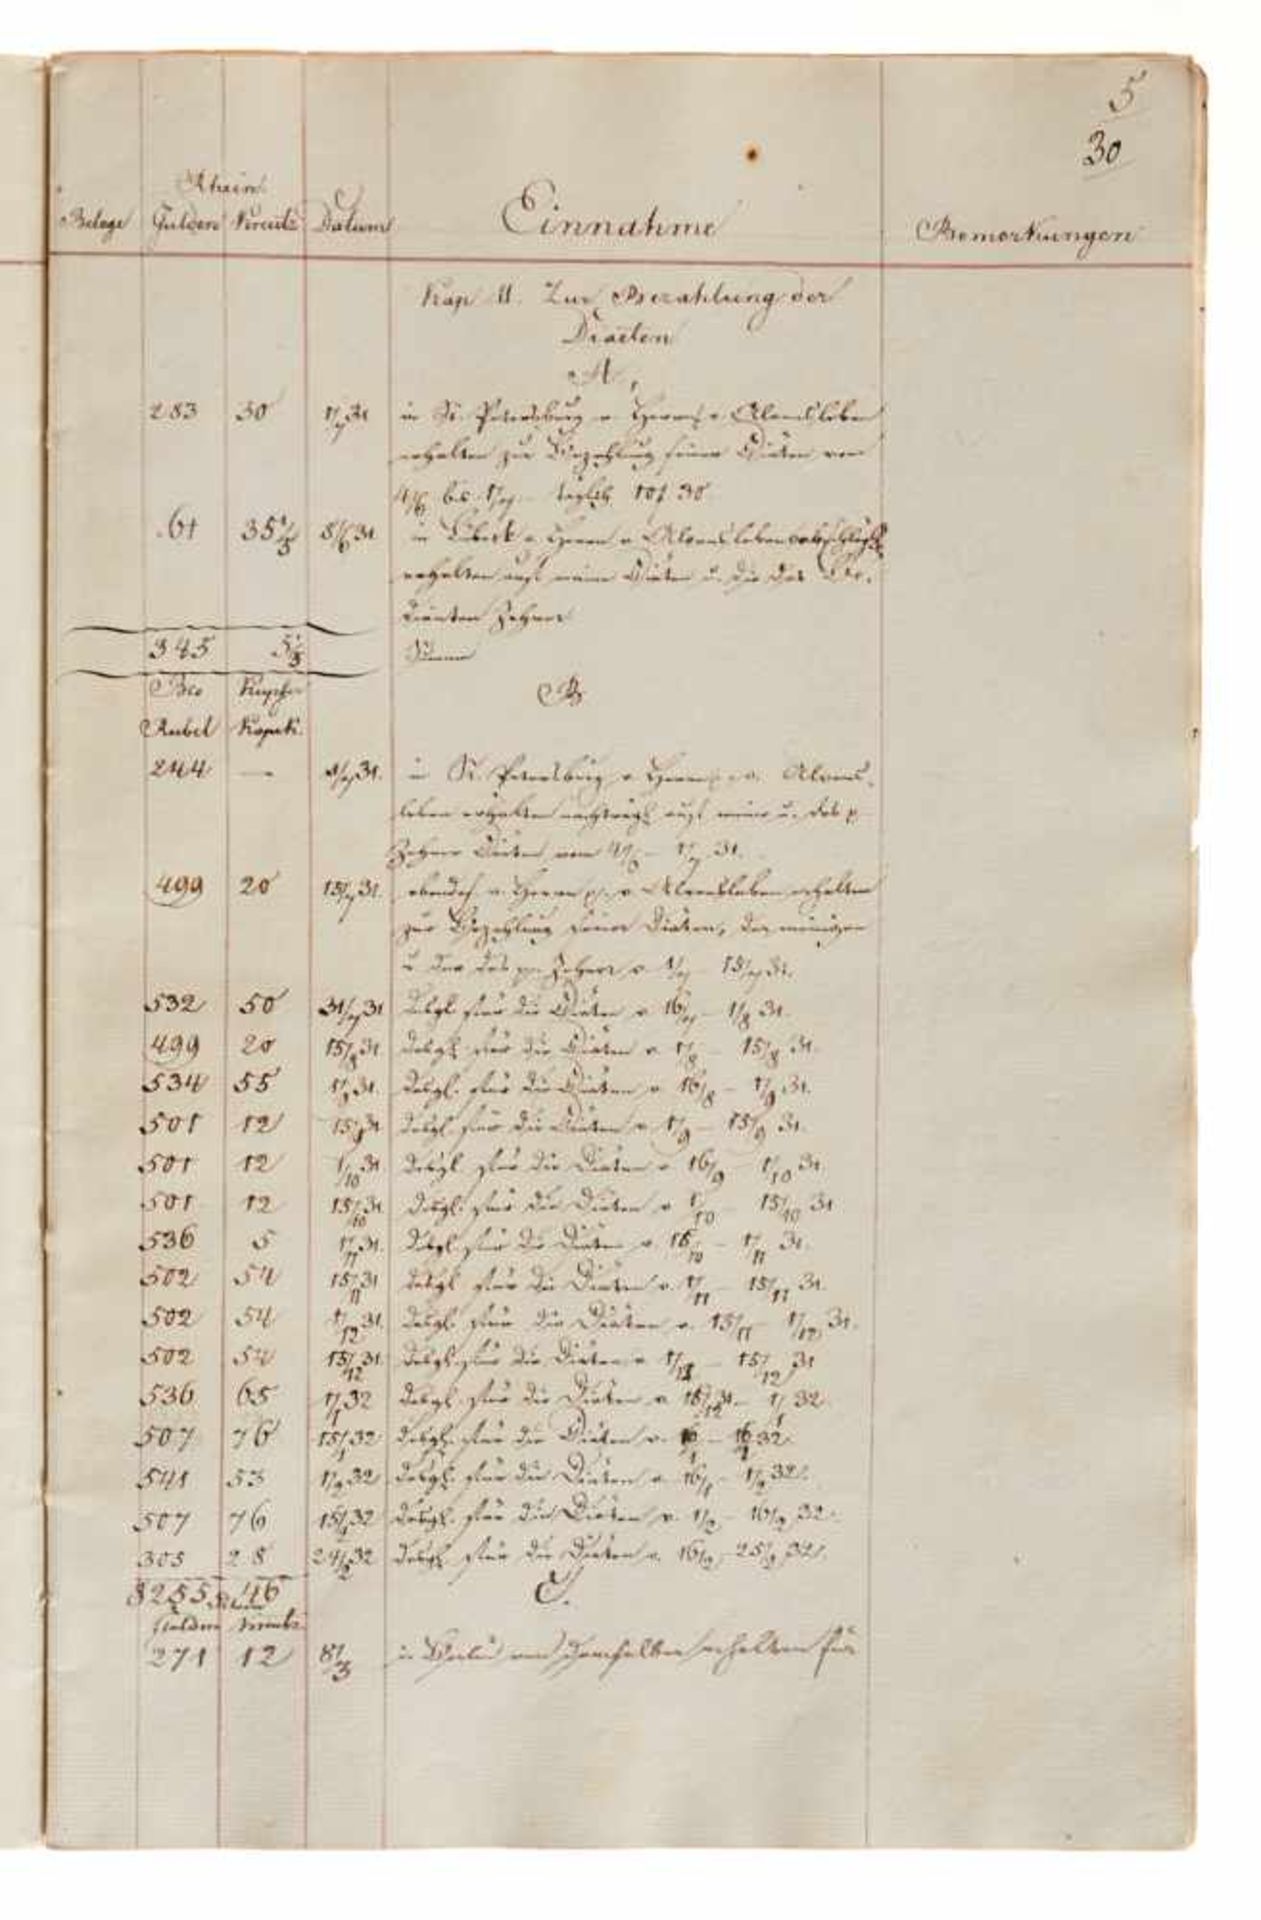 5
30
Rhein.
Belege Gulden Kreutz Datum Einnahme Bemerkungen
Kap II. Zur Bezahlung der
Diäten
A.
283 30 1/7 31 in St. Petersburg v. Herrn v. Alvensleben
erhalten zur Bezahlung seiner Diäten von
4/6 bis 1/7 täglich 10f 30
61 35 1/3 8/6 31 in Lübeck v. Herrn v. Alvensleben abschläglich
erhalten auf meine Diäten u. die des Be-
dienten Zehner
345 5 1/3 Summa
Bco Kupfer B
Rubel Kopek.
244 — 1/7 31. in St. Petersburg v. Herrn v. Alvens-
leben erhalten nachträgl. auf meine u. des p.
Zehner Diäten vom 4/6 – 1/7 31.
499 20 15/7 31. ebendas. v. Herrn p. v. Alvensleben erhalten
zur Bezahlung seiner Diäten, der meinigen
u. der des pp. Zehner v. 1/7 – 15/7 31.
532 50 31/7 31 desgl. für die Diäten v. 16/7 – 1/8 31.
499 20 15/8 31 desgl. für die Diäten v. 1/8 – 15/8 31.
534 55 1/9 31. desgl. für die Diäten v. 16/8 – 1/9 31.
501 12 15/9 31 desgl. für die Diäten v. 1/9 – 15/9 31.
501 12 1/10 31 desgl. für die Diäten v. 16/9 – 1/10 31.
501 12 15/10 31 desgl. für die Diäten v. 1/10 – 15/10 31
536 5 1/11 31. desgl. für die Diäten v. 16/10 – 1/11 31.
502 54 15/11 31 desgl. für die Diäten v. 1/11 – 15/11 31.
502 54 1/12 31. desgl. für die Diäten v. 15/11 – 1/12 31.
502 54 15/12 31. desgl. für die Diäten v. 1/12 – 15/12 31
536 65 1/1 32 desgl. für die Diäten v. 16/12 31 – 1/1 32.
507 76 15/1 32 desgl. für die Diäten v. – 32.
541 53 1/2 32 desgl. für die Diäten v. 16/1 – 1/2 32.
507 76 15/2 32 desgl. für die Diäten v. 1/2 – 16/2 32.
305 28 24/2 32 desgl. für die Diäten v. 16/2 – 25/2 32.
8255 46 C.
Gulden Kreutz.
271 12 8/3 in Berlin von demselben erhalten für